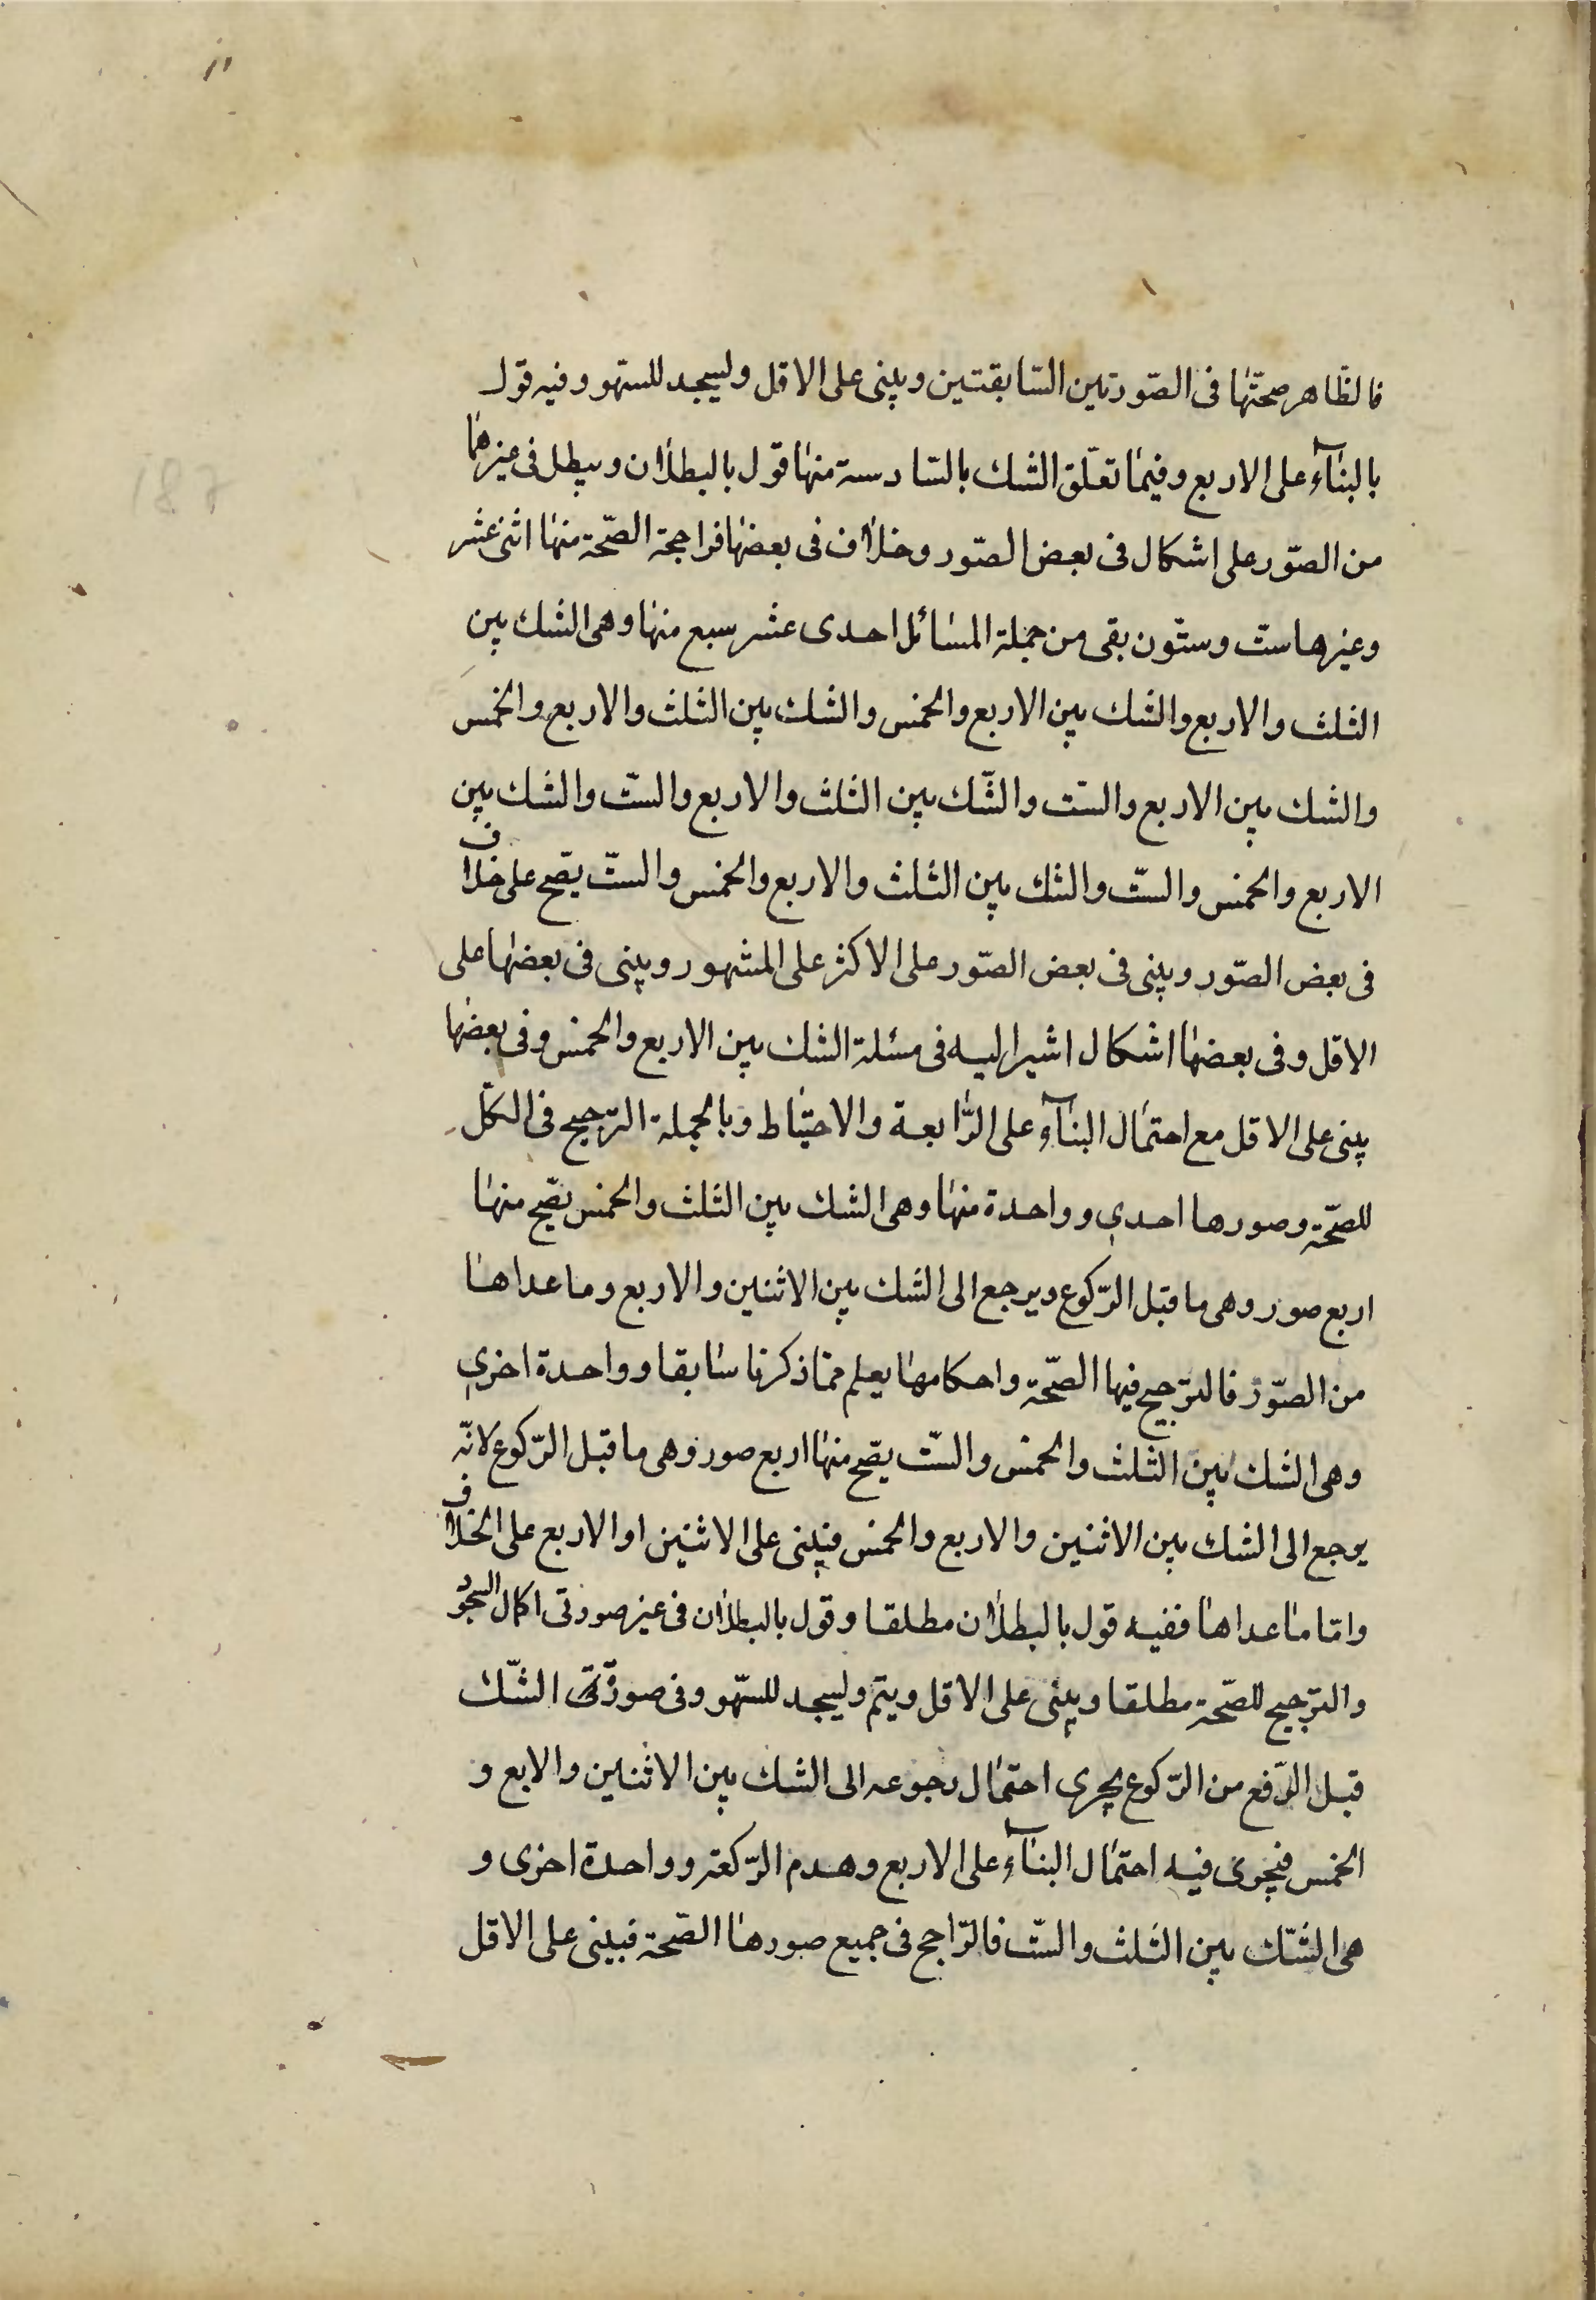 فالظّاهر صحّتها فى الصّورتين السّابقتين ويبنى على الاقل وليسجد للسّهو وفيه قول
بالبنآء على الاربع وفيما تعلّق الشك بالسّادسة منها قول بالبطلان ويبطل فى غيرهما
من الصّور على اشكال فى بعض الصّور وخلاف فى بعضها فراجحة الصّحّة منها اثنى عشر
وغيرها ستّ وستّون بقى من جملة المسائل احدى عشر سبع منها وهى الشك بين
الثلث والاربع والشك بين الاربع والخمس والشك بين الثلث والاربع والخمس
والشك بين الاربع والستّ والشّك بين الثلث والاربع والستّ والشك بين
الاربع والخمس والستّ والشك بين الثلث والاربع والخمس والستّ يصّح على خلاف
فى بعض الصّور ويبنى فى بعض الصّور على الاكثر على المشهور ويبنى فى بعضها على
الاقل وفى بعضها اشكال اشير اليه فى مسئلة الشك بين الاربع والخمس وفى بعضها
يبنى على الاقل مع احتمال البنآء على الرّابعة والاحتياط وبالجملة الترجيح فى الكلّ
للصّحّة وصورها احدى وواحدة منها وهى الشك بين الثلث والخمس يصّح منها
اربع صور وهى ما قبل الرّكوع ويرجع الى الشك بين الاثنين والاربع وما عداها
من الصّور فالترّجيح فيها الصّحّة واحكامها يعلم ممّا ذكرنا سابقا وواحدة اخرى
وهى الشك بين الثلث والخمس والستّ يصّح منها اربع صور وهى ما قبل الرّكوع لانّه
يرجع الى الشك بين الاثنين والاربع والخمس فيبنى على الاثنين او الاربع على الخلاف
وامّا ما عداها ففيه قول بالبطلان مطلقا وقول بالبطلان فى غير صورتى اكمال السجود
والترّجيح للصّحّة مطلقا ويبنى على الاقل ويتم وليسجد للسّهو وفى صورتى الشّك
قبل الرّفع من الرّكوع يجرى احتمال رجوعه الى الشك بين الاثنين والابع و
الخمس فيجرى فيه احتمال البنآء على الاربع وهدم الرّكعة وواحدة اخرى و
هى الشّك بين الثلث والستّ فالرّاجح فى جميع صورها الصّحة فيبنى على الاقل